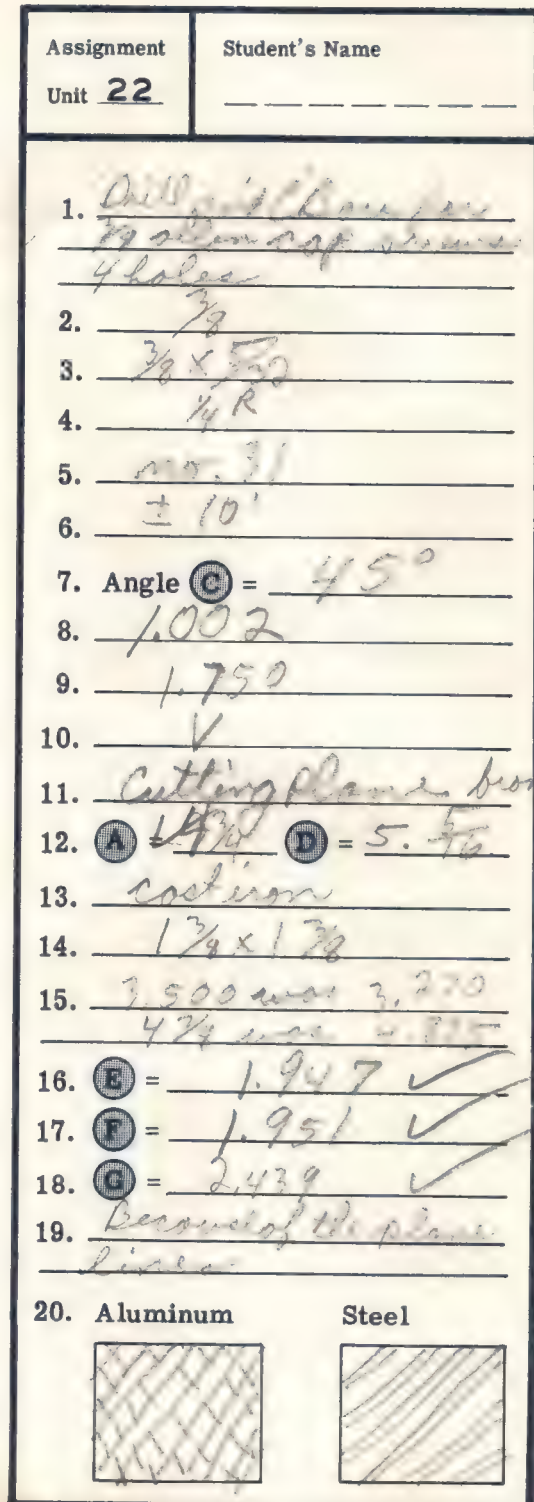 Assignment
Unit 22
Student's Name
1. Drill for
cap screws
4 holes
2. 3/8
3. 3/8 x 5/32
4. 1/4 R
5. no. 31
6. ± 10'
7. Angle C = 45°
8. 1.002
9. 1.750
10. √
11. Cutting plane
12. A = D = 5. 5/16
13. cast iron
14. 1 3/8 x 1 3/8
15. 3.500 was
was
16. E = 1.947 ✓
17. F = 1.951 ✓
18. G = 2.439 ✓
19. Because of the plane
lines
20. Aluminum Steel